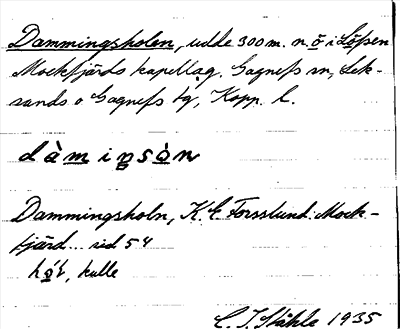 Dammingsholen, udde 300 m. n. ö i Löpen
Mockfjärds kapellag. Gagnefs sn, Lek-
sands o Gagnefs tg, Kopp. l.
Dammingsholn, K. E. Forsslund: Mock-
fjärd... sid 54
kulle
C. I. Ståhle 1935